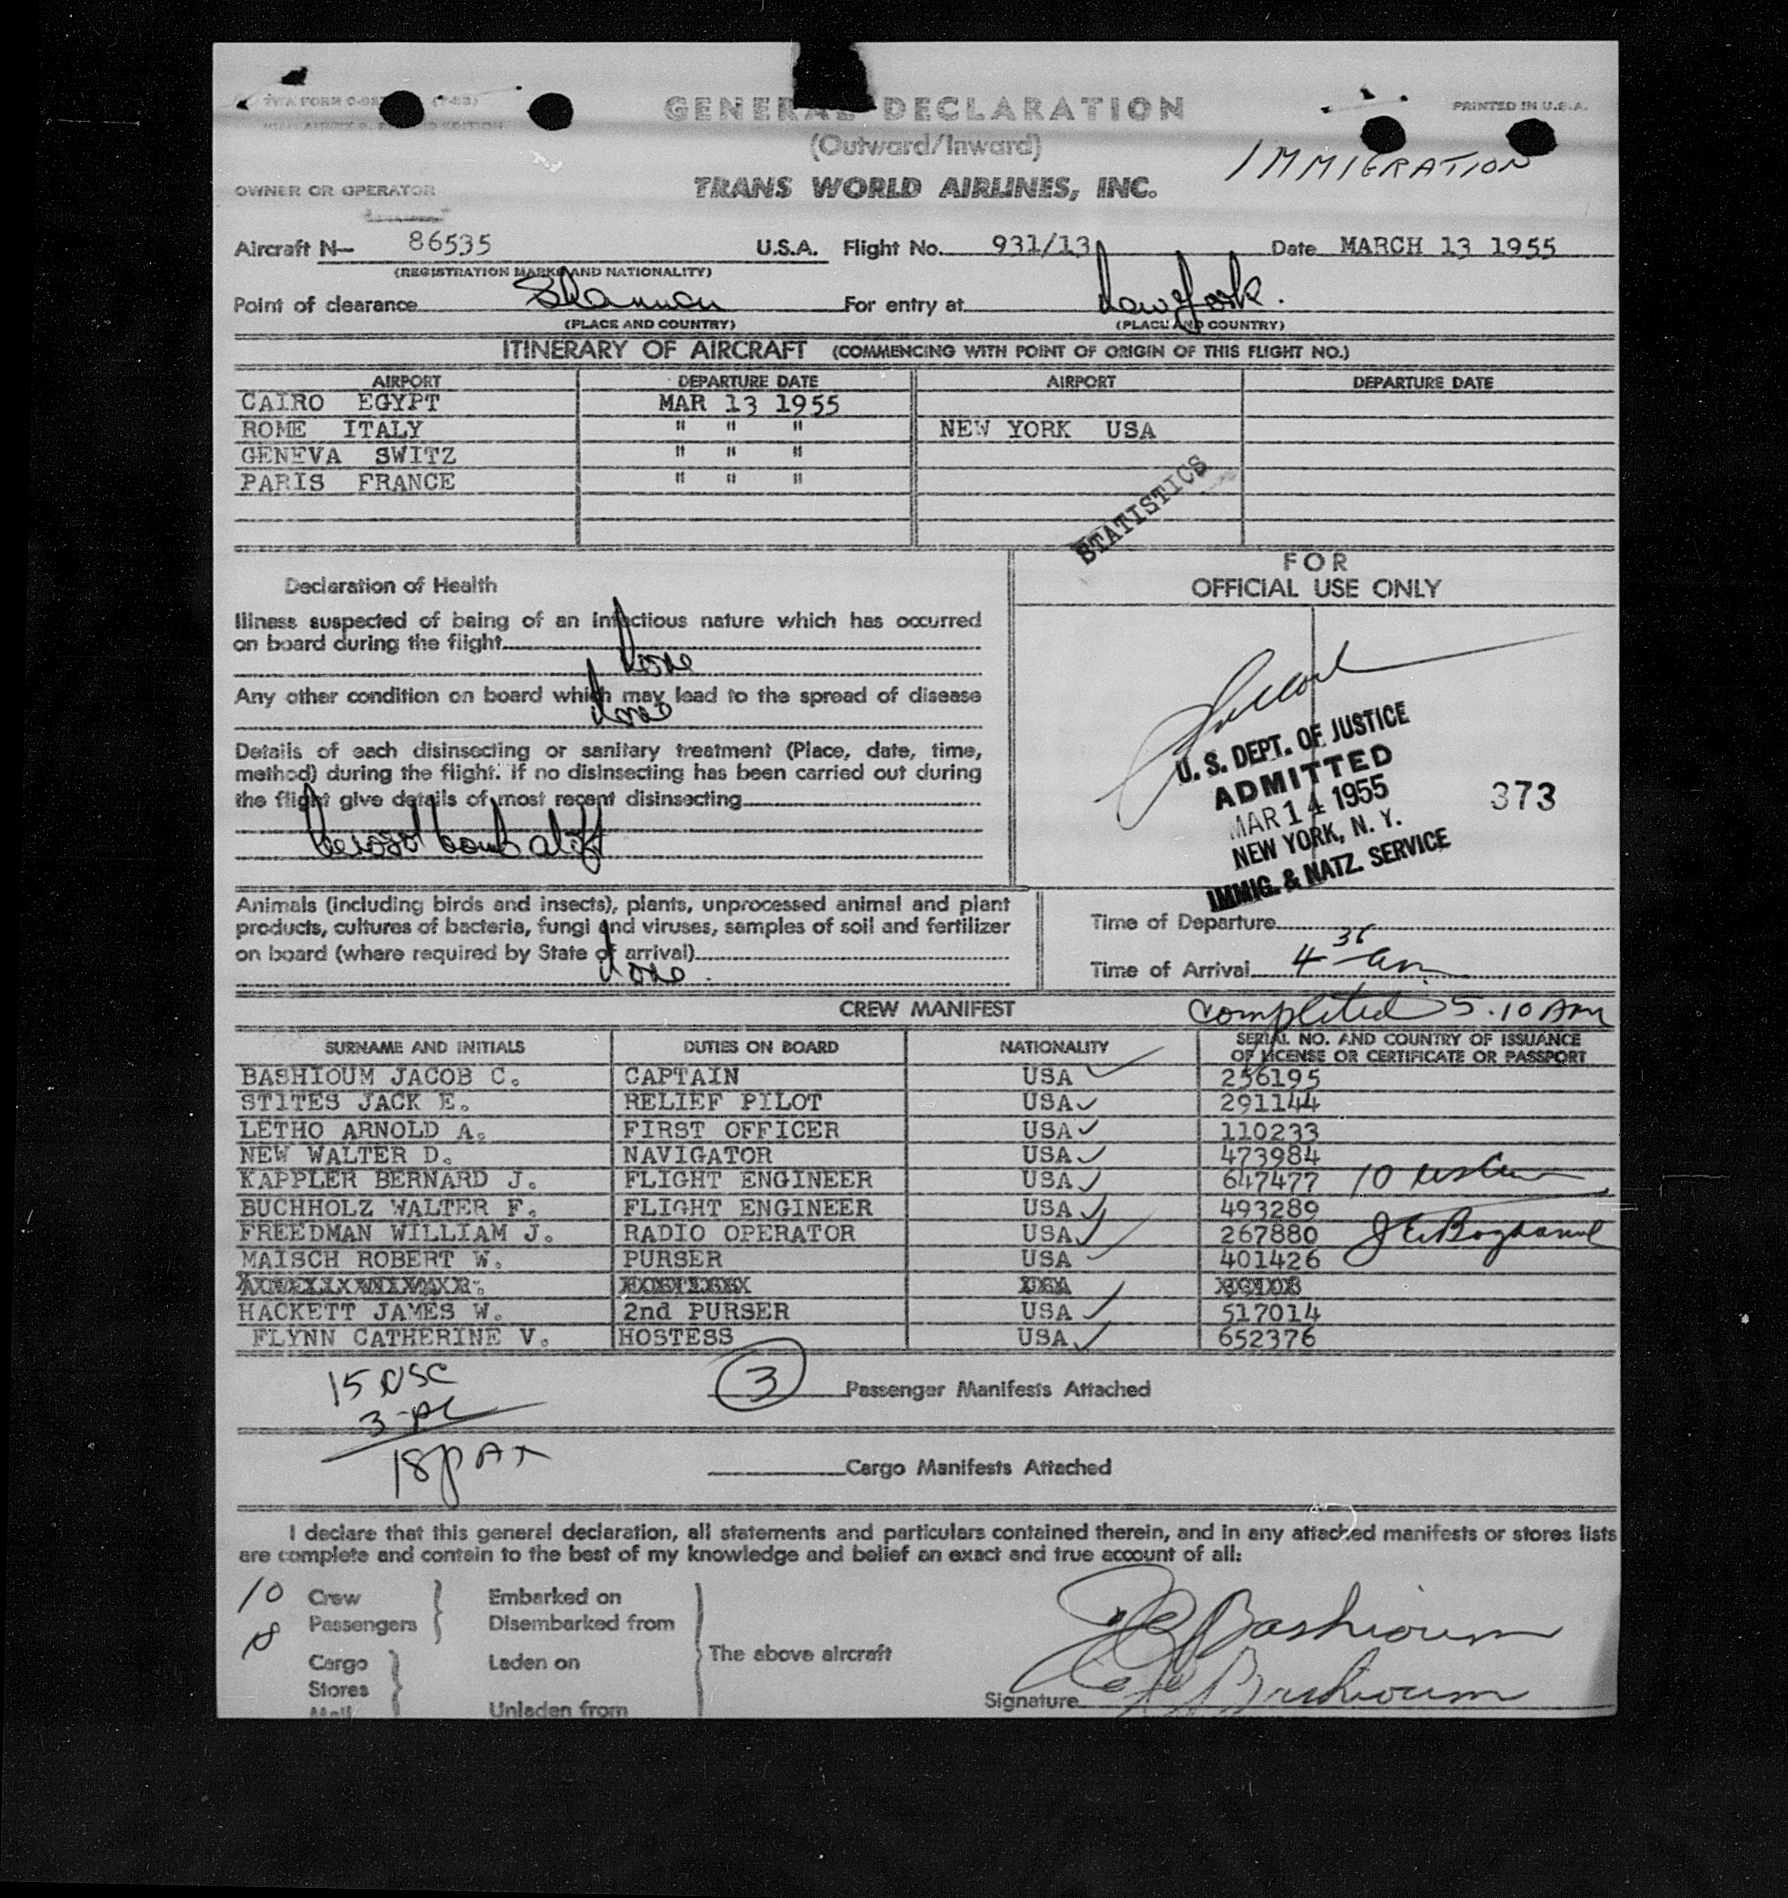 TWA FORM (7-53)
GENERAL DECLARATION
PRINTED IN U.S.A.
(Outward/Inward)
IMMIGRATION
OWNER OR OPERATOR
TRANS WORLD AIRLINES, INC.
Aircraft N— 86535 U.S.A. Flight No. 931/13 Date MARCH 13 1955
(REGISTRATION MARKS AND NATIONALITY)
Point of clearance Shannon For entry at New York.
(PLACE AND COUNTRY) (PLACE AND COUNTRY)
ITINERARY OF AIRCRAFT (COMMENCING WITH POINT OF ORIGIN OF THIS FLIGHT NO.)
AIRPORT DEPARTURE DATE AIRPORT DEPARTURE DATE
CAIRO EGYPT MAR 13 1955
ROME ITALY " " " NEW YORK USA
GENEVA SWITZ " " "
PARIS FRANCE " " "
STATISTICS
FOR
OFFICIAL USE ONLY
Declaration of Health
Illness suspected of being of an infectious nature which has occurred
on board during the flight
None
Any other condition on board which may lead to the spread of disease
None
Details of each disinsecting or sanitary treatment (Place, date, time,
method) during the flight. If no disinsecting has been carried out during
the flight give details of most recent disinsecting
Aerosol bomb
U. S. DEPT. OF JUSTICE
ADMITTED
MAR 14 1955
NEW YORK, N. Y.
IMMIG. & NATZ. SERVICE
373
Animals (including birds and insects), plants, unprocessed animal and plant
products, cultures of bacteria, fungi and viruses, samples of soil and fertilizer
on board (where required by State of arrival)
None.
Time of Departure
Time of Arrival 4 36 am
CREW MANIFEST
completed 5.10 AM
SURNAME AND INITIALS DUTIES ON BOARD NATIONALITY SERIAL NO. AND COUNTRY OF ISSUANCE
OF LICENSE OR CERTIFICATE OR PASSPORT
BASHIOUM JACOB C. CAPTAIN USA 256195
STITES JACK E. RELIEF PILOT USA 291144
LETHO ARNOLD A. FIRST OFFICER USA 110233
NEW WALTER D. NAVIGATOR USA 473984
KAPPLER BERNARD J. FLIGHT ENGINEER USA 647477 10
BUCHHOLZ WALTER F. FLIGHT ENGINEER USA 493289
FREEDMAN WILLIAM J. RADIO OPERATOR USA 267880
MAISCH ROBERT W. PURSER USA 401426
HACKETT JAMES W. 2nd PURSER USA 517014
FLYNN CATHERINE V. HOSTESS USA 652376
15 USC
3
18 PAX
3 Passenger Manifests Attached
Cargo Manifests Attached
I declare that this general declaration, all statements and particulars contained therein, and in any attached manifests or stores lists
are complete and contain to the best of my knowledge and belief an exact and true account of all:
10 Crew Embarked on
18 Passengers Disembarked from
The above aircraft
Cargo Laden on
Stores
Mail Unladen from
Signature J C Bashioum
J C Bashioum